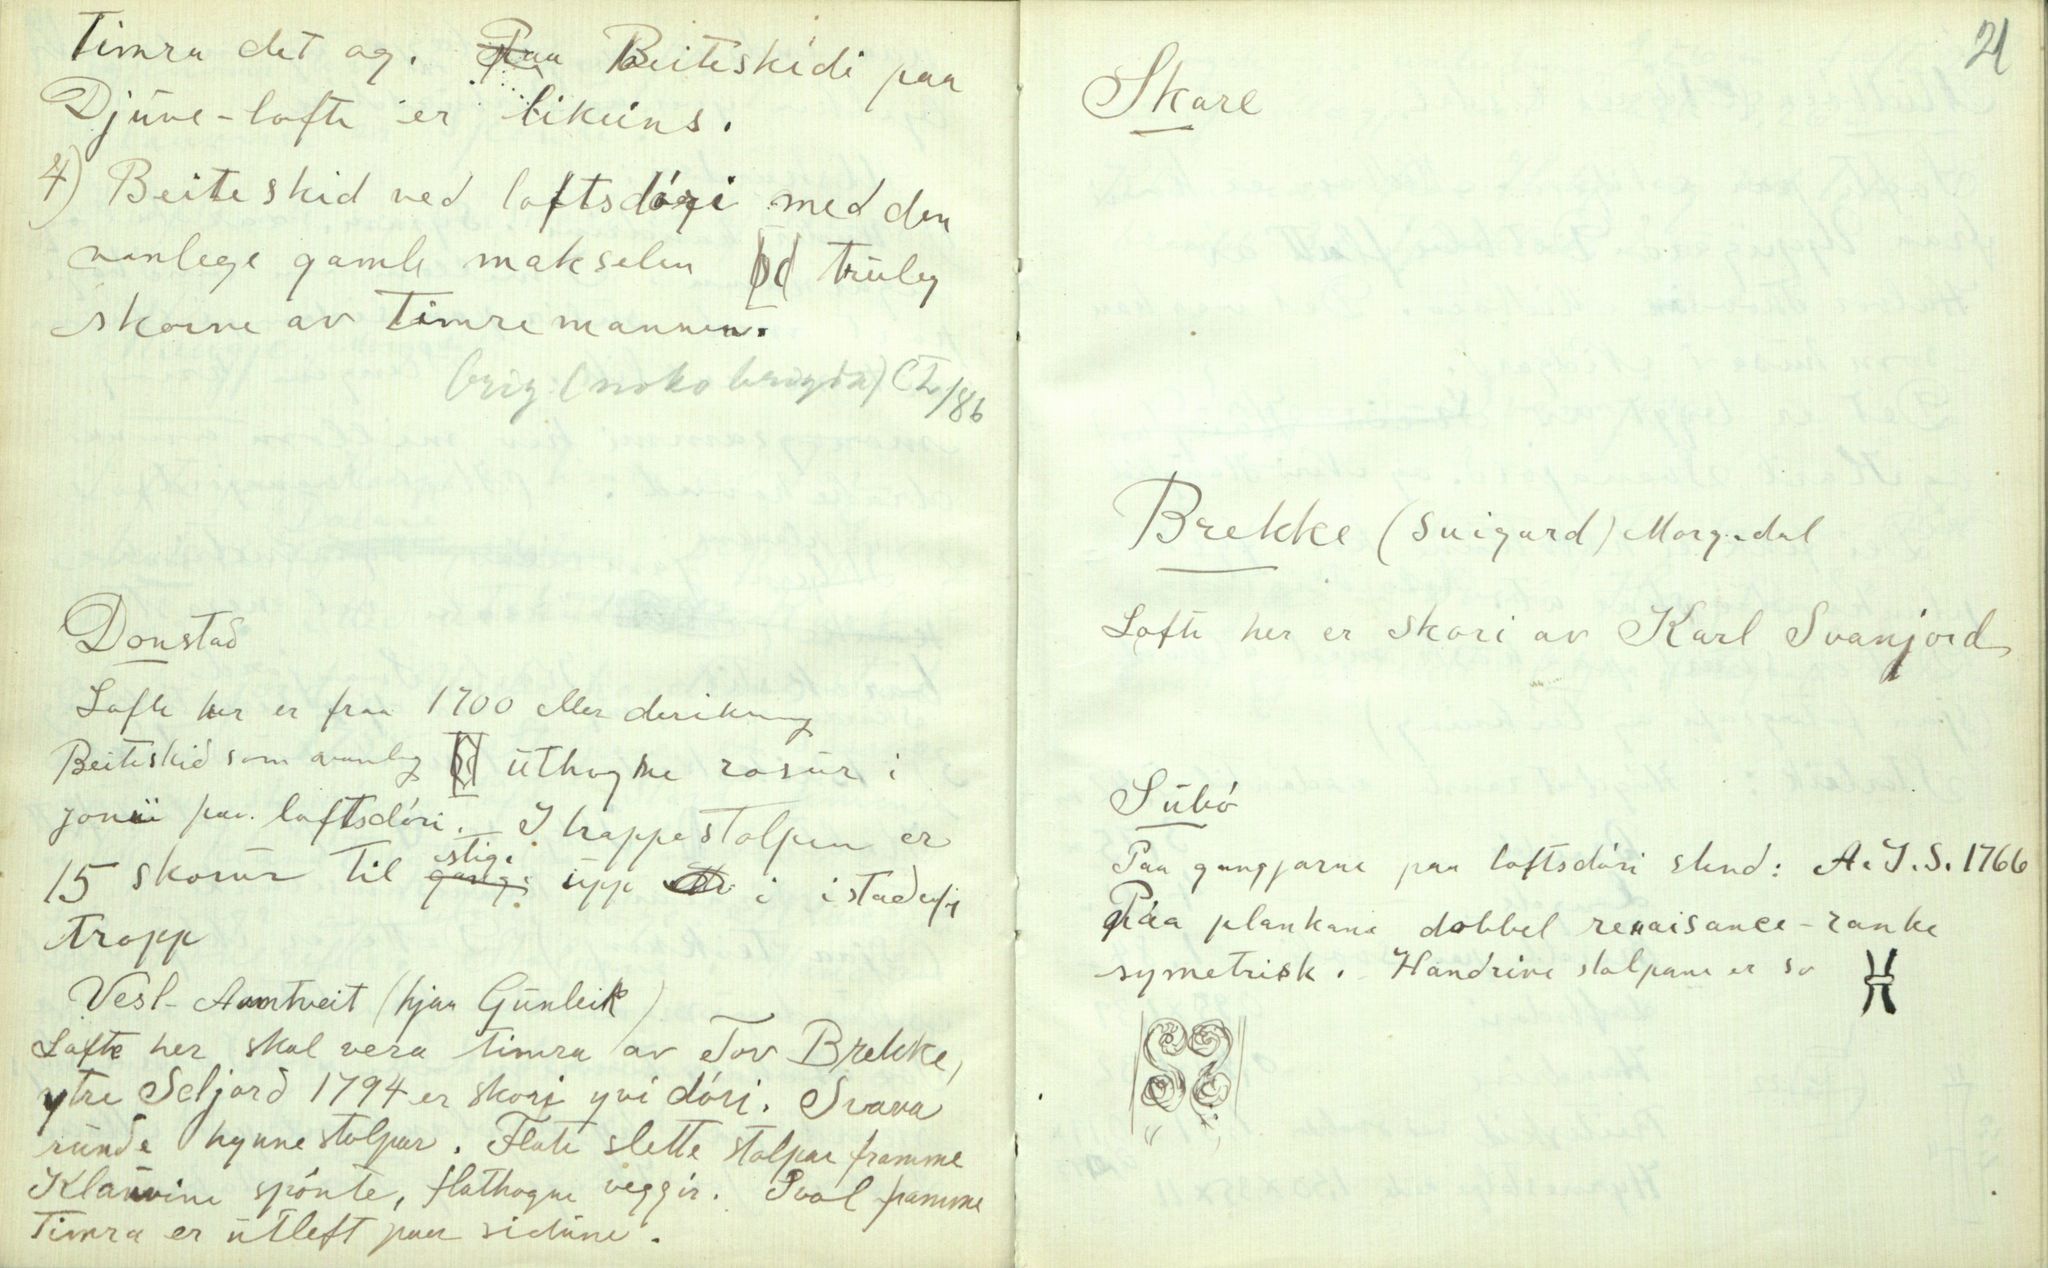 Timra det og. Paa Beiteskidi paa
Djúve-lofte er likeins.
4) Beiteskid ved loftsdóri med den
vanlege gamle makselen truleg
skorne av Timremannen.
Orig. (noko brigda) CL/86
Donstad
Lofte her er fraa 1700 eller derikring
Beiteskid som vanleg úthogne rosúr i
paa loftsdóri. I trappestolpen er
15 skorúr til gang stige upp i istadenfy
tropp
Vesl-Aamtveit (hjaa Gúnleik)
Lofte her skal vera timra av Tov Brekke,
ytre Seljord 1794 er skori yvi dóri. Svara
rúnde hynnestolpar. Flate slette stolpar framme
Klaúvine spónte, flathogne veggir. Sval framme
Timra er útleft paa sidúne.
21
Skare
Brekke (suigard) Morgedal
Lofte her er skori av Karl Svanjord
Súbó
Paa gangjarne paa loftsdóri stend: A. J. S. 1766
Paa plankane dobbel renaisance-ranke
symetrisk. Handrive stolpane er so